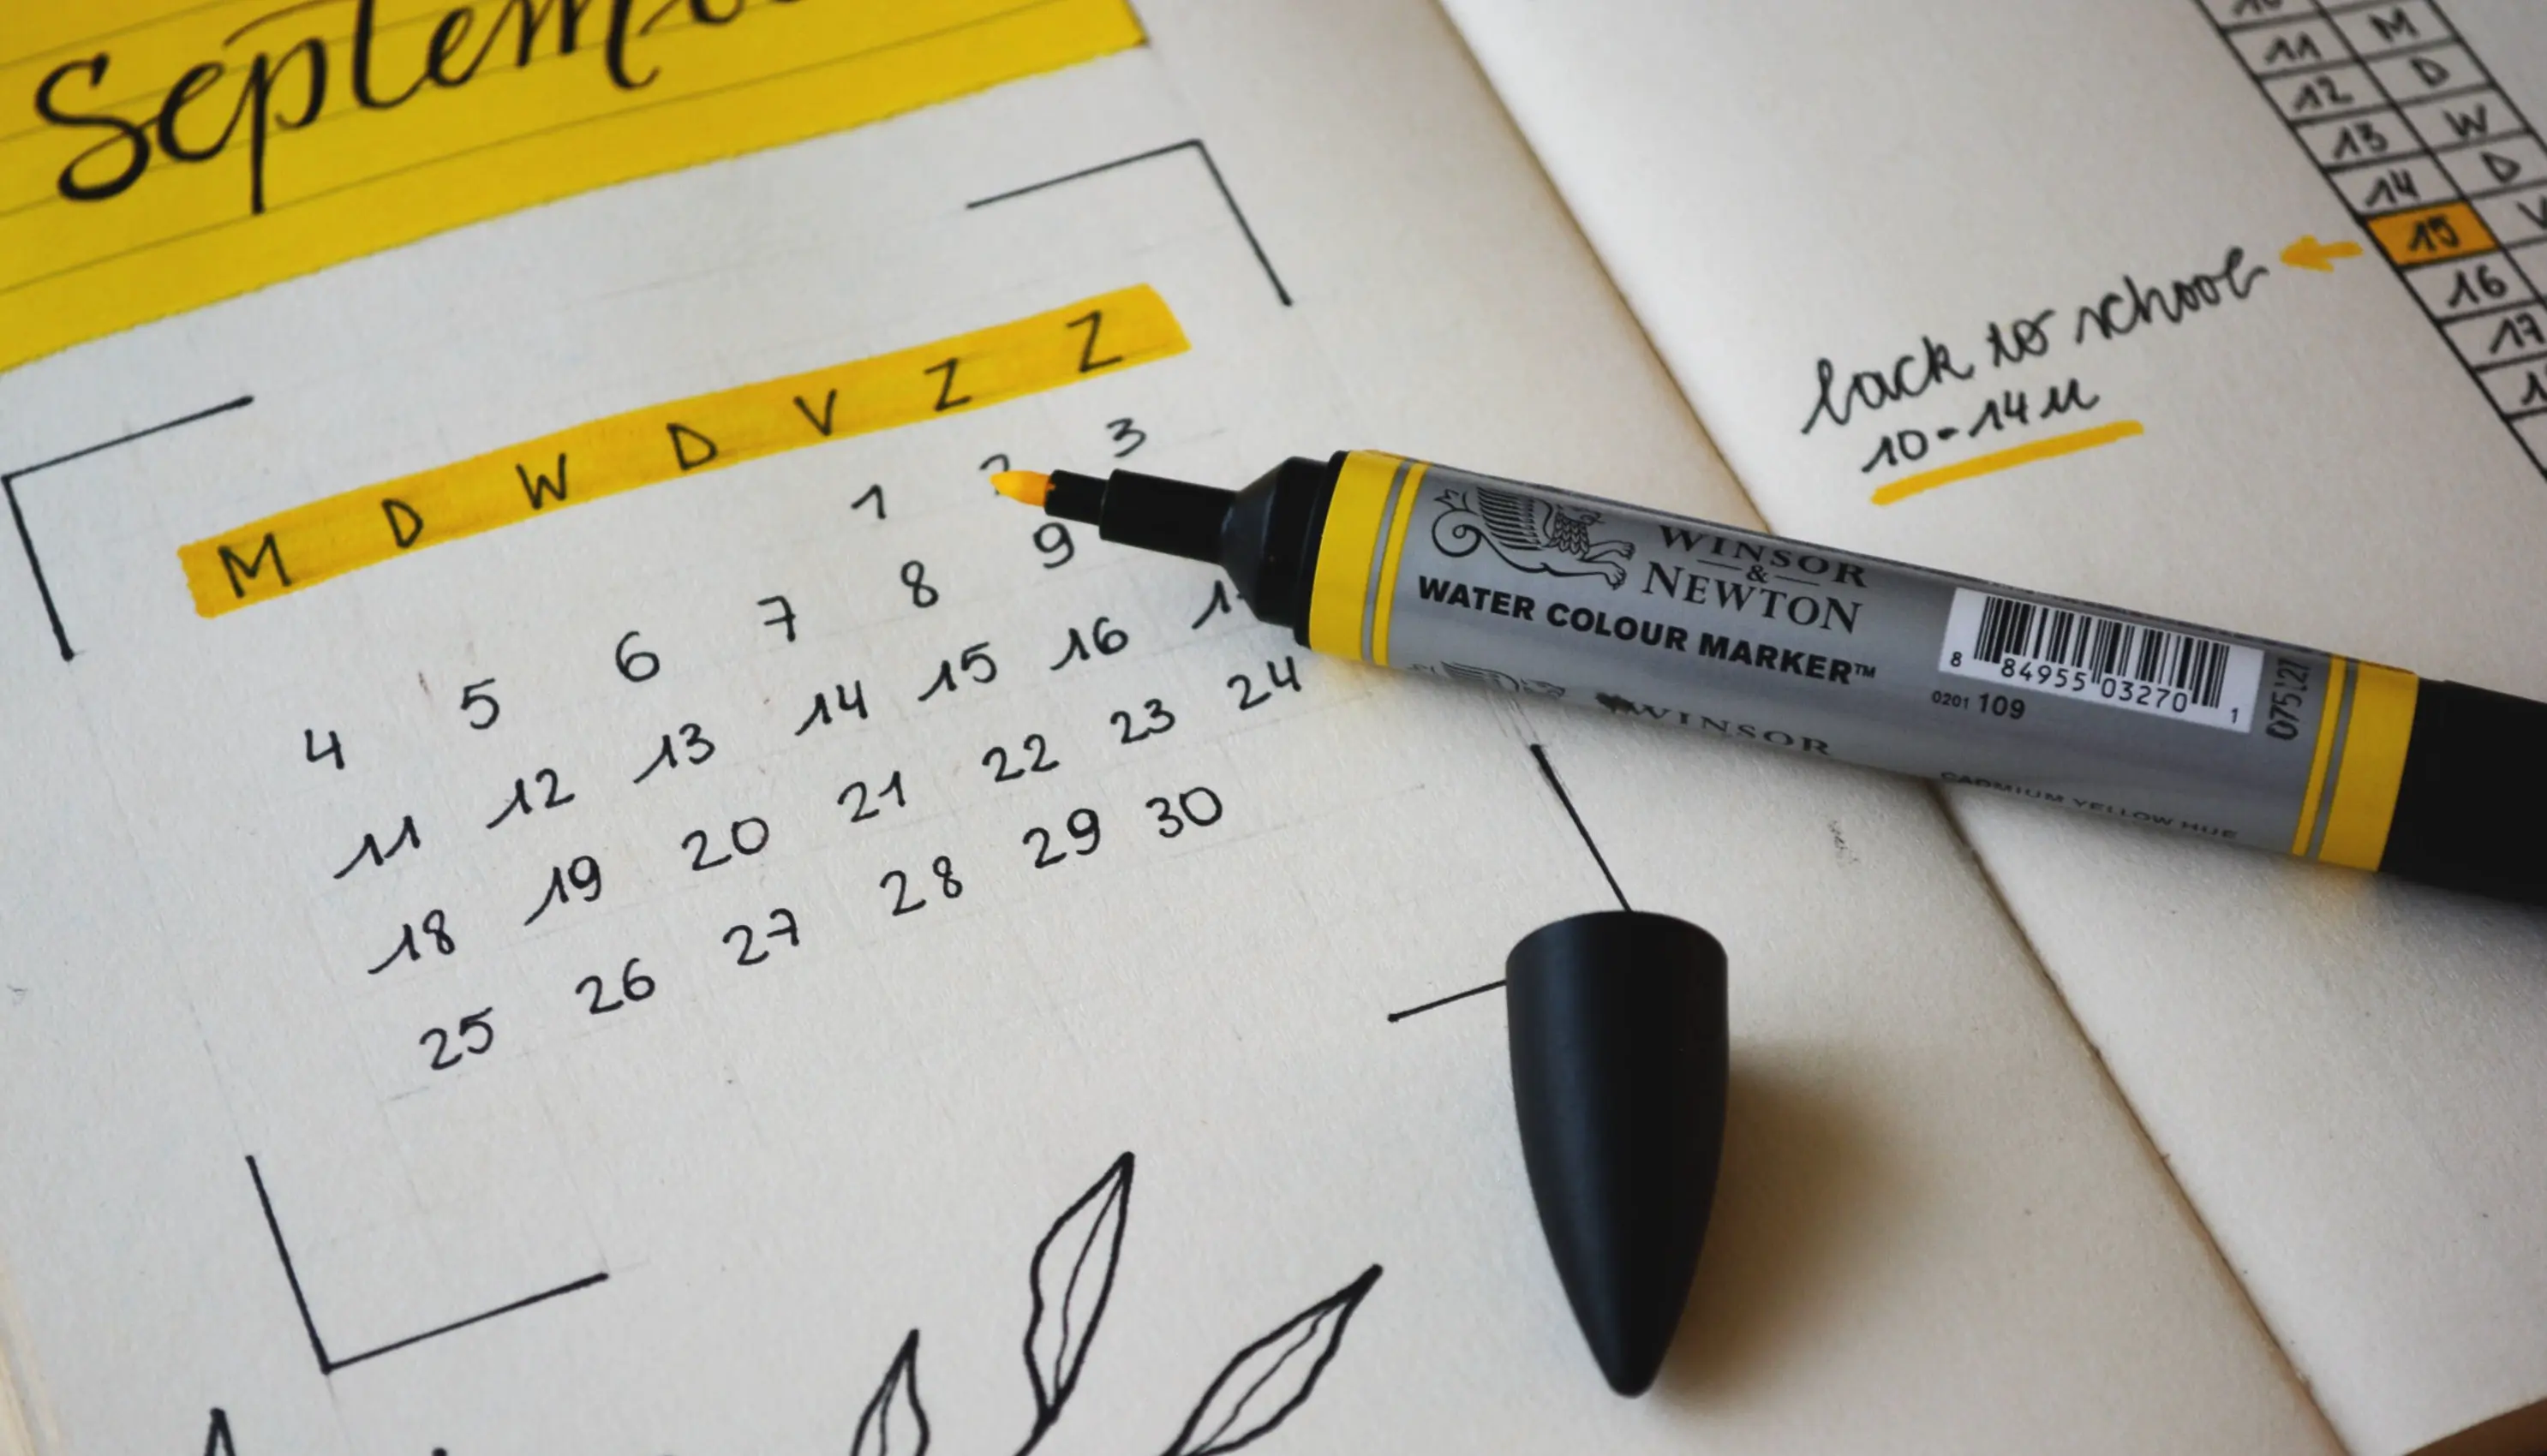 M D W D V Z Z
1 2 3
4 5 6 7 8 9
11 12 13 14 15 16
18 19 20 21 22 23 24
25 26 27 28 29 30
11 M
12 D
13 W
14 D
15 V
16
17
back to school
10-14 u
WINSOR
&
NEWTON
WATER COLOUR MARKER™
8 84955 03270 1
0201 109
075127
WINSOR
CADMIUM YELLOW HUE